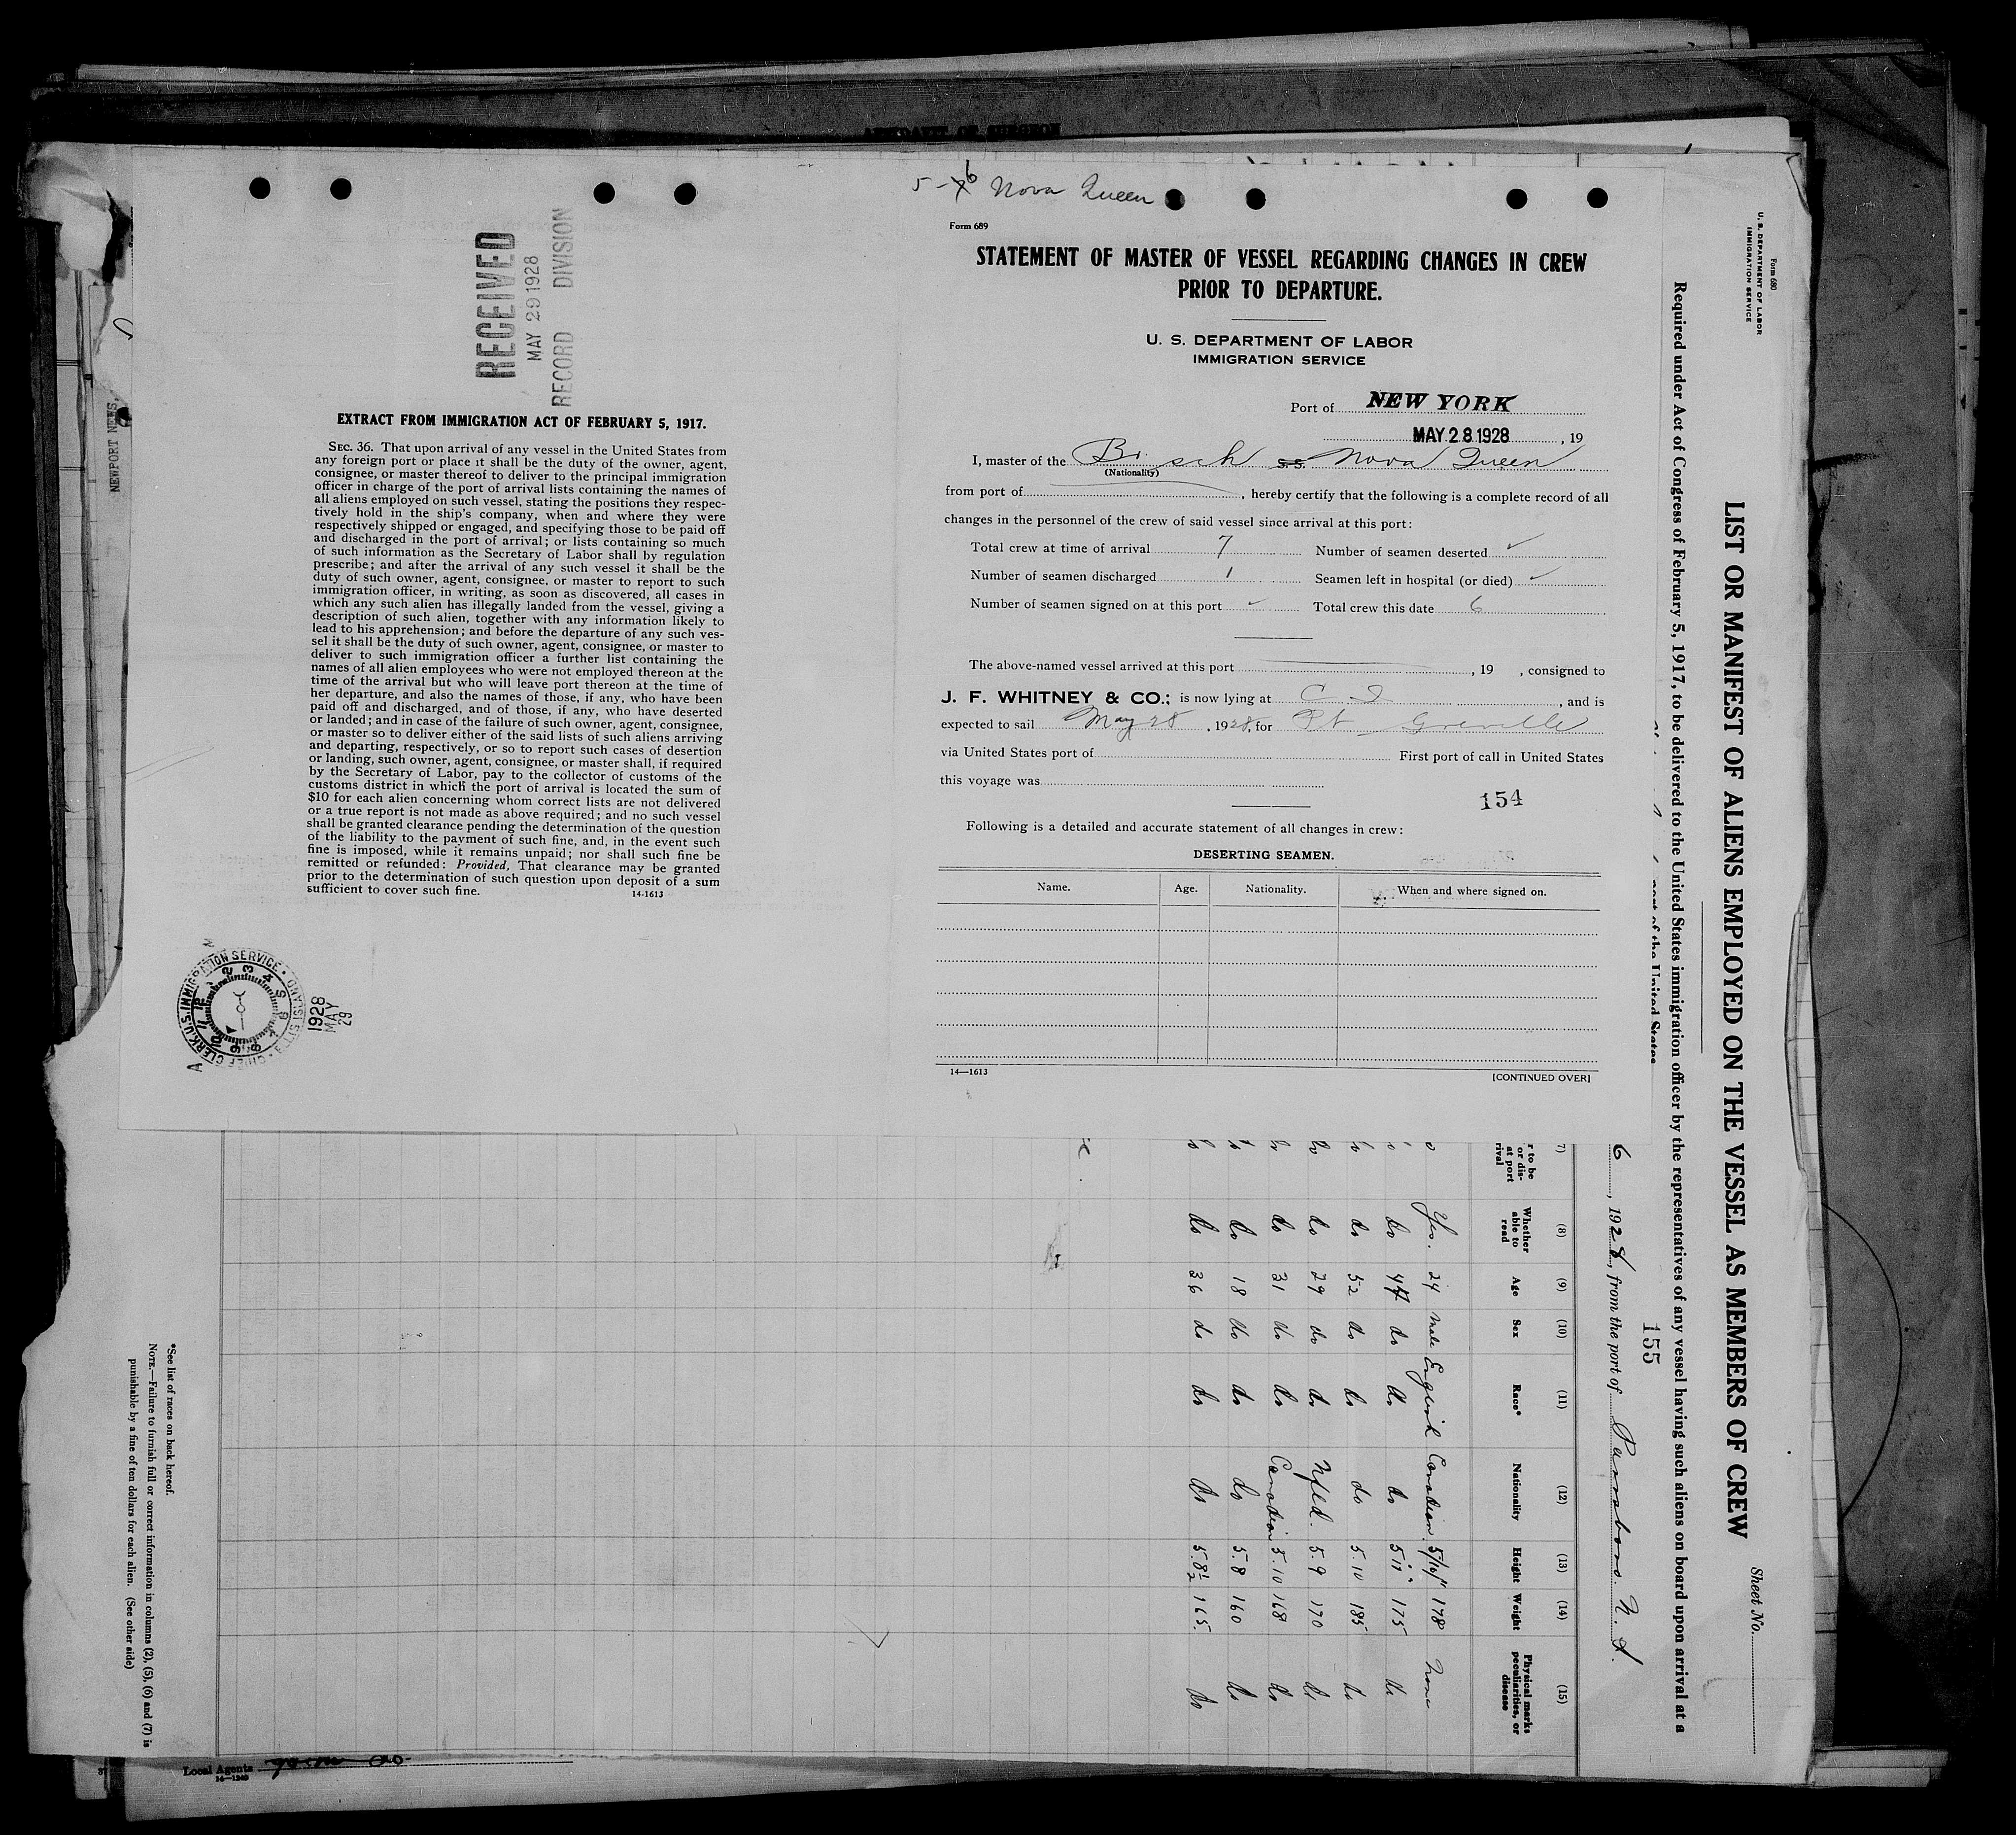 AFFIDAVIT OF SURGEON
5-6 Nova Queen
RECEIVED
MAY 29 1928
RECORD DIVISION
EXTRACT FROM IMMIGRATION ACT OF FEBRUARY 5, 1917.
SEC. 36. That upon arrival of any vessel in the United States from
any foreign port or place it shall be the duty of the owner, agent,
consignee, or master thereof to deliver to the principal immigration
officer in charge of the port of arrival lists containing the names of
all aliens employed on such vessel, stating the positions they respec-
tively hold in the ship's company, when and where they were
respectively shipped or engaged, and specifying those to be paid off
and discharged in the port of arrival; or lists containing so much
of such information as the Secretary of Labor shall by regulation
prescribe; and after the arrival of any such vessel it shall be the
duty of such owner, agent, consignee, or master to report to such
immigration officer, in writing, as soon as discovered, all cases in
which any such alien has illegally landed from the vessel, giving a
description of such alien, together with any information likely to
lead to his apprehension; and before the departure of any such ves-
sel it shall be the duty of such owner, agent, consignee, or master to
deliver to such immigration officer a further list containing the
names of all alien employees who were not employed thereon at the
time of the arrival but who will leave port thereon at the time of
her departure, and also the names of those, if any, who have been
paid off and discharged, and of those, if any, who have deserted
or landed; and in case of the failure of such owner, agent, consignee,
or master so to deliver either of the said lists of such aliens arriving
and departing, respectively, or so to report such cases of desertion
or landing, such owner, agent, consignee, or master shall, if required
by the Secretary of Labor, pay to the collector of customs of the
customs district in which the port of arrival is located the sum of
$10 for each alien concerning whom correct lists are not delivered
or a true report is not made as above required; and no such vessel
shall be granted clearance pending the determination of the question
of the liability to the payment of such fine, and, in the event such
fine is imposed, while it remains unpaid; nor shall such fine be
remitted or refunded: Provided, That clearance may be granted
prior to the determination of such question upon deposit of a sum
sufficient to cover such fine.
14-1613
U.S. IMMIGRATION SERVICE · ELLIS ISLAND · CHIEF CLERK
1928
MAY
29
Form 689
STATEMENT OF MASTER OF VESSEL REGARDING CHANGES IN CREW
PRIOR TO DEPARTURE.
U. S. DEPARTMENT OF LABOR
IMMIGRATION SERVICE
Port of NEW YORK
MAY 28 1928, 19
I, master of the Br. sch S.S. Nova Queen
(Nationality)
from port of , hereby certify that the following is a complete record of all
changes in the personnel of the crew of said vessel since arrival at this port:
Total crew at time of arrival 7 Number of seamen deserted ✓
Number of seamen discharged 1 Seamen left in hospital (or died) ✓
Number of seamen signed on at this port ✓ Total crew this date 6
The above-named vessel arrived at this port , 19 , consigned to
J. F. WHITNEY & CO.; is now lying at C I , and is
expected to sail May 28, 1928, for Pt Greville
via United States port of First port of call in United States
this voyage was
154
Following is a detailed and accurate statement of all changes in crew:
DESERTING SEAMEN.
Name. Age. Nationality. When and where signed on.
14—1613
[CONTINUED OVER]
NEWPORT NEWS,
Form 680
U. S. DEPARTMENT OF LABOR
IMMIGRATION SERVICE
Sheet No.
LIST OR MANIFEST OF ALIENS EMPLOYED ON THE VESSEL AS MEMBERS OF CREW
Required under Act of Congress of February 5, 1917, to be delivered to the United States immigration officer by the representatives of any vessel having such aliens on board upon arrival at a
port of the United States
155
6, 1928, from the port of Parrsboro. N. S.
(7) (8) (9) (10) (11) (12) (13) (14) (15)
Whether able to read Age Sex Race* Nationality Height Weight Physical marks, peculiarities, or disease
Yes. 24 Male English Canadian 178 None
do 44 do do do 5'11" 175 do
do 52 do do do 5.10 185 do
do 29 do do Nfld. 5.9 170 do
do 31 do do Canadian 5.10 168 do
do 18 do do do 5.8 160 do
do 36 do do do 5.8½ 165. do
*See list of races on back hereof.
NOTE.—Failure to furnish full or correct information in columns (2), (5), (6) and (7) is
punishable by a fine of ten dollars for each alien. (See other side)
Local Agents
14—1240